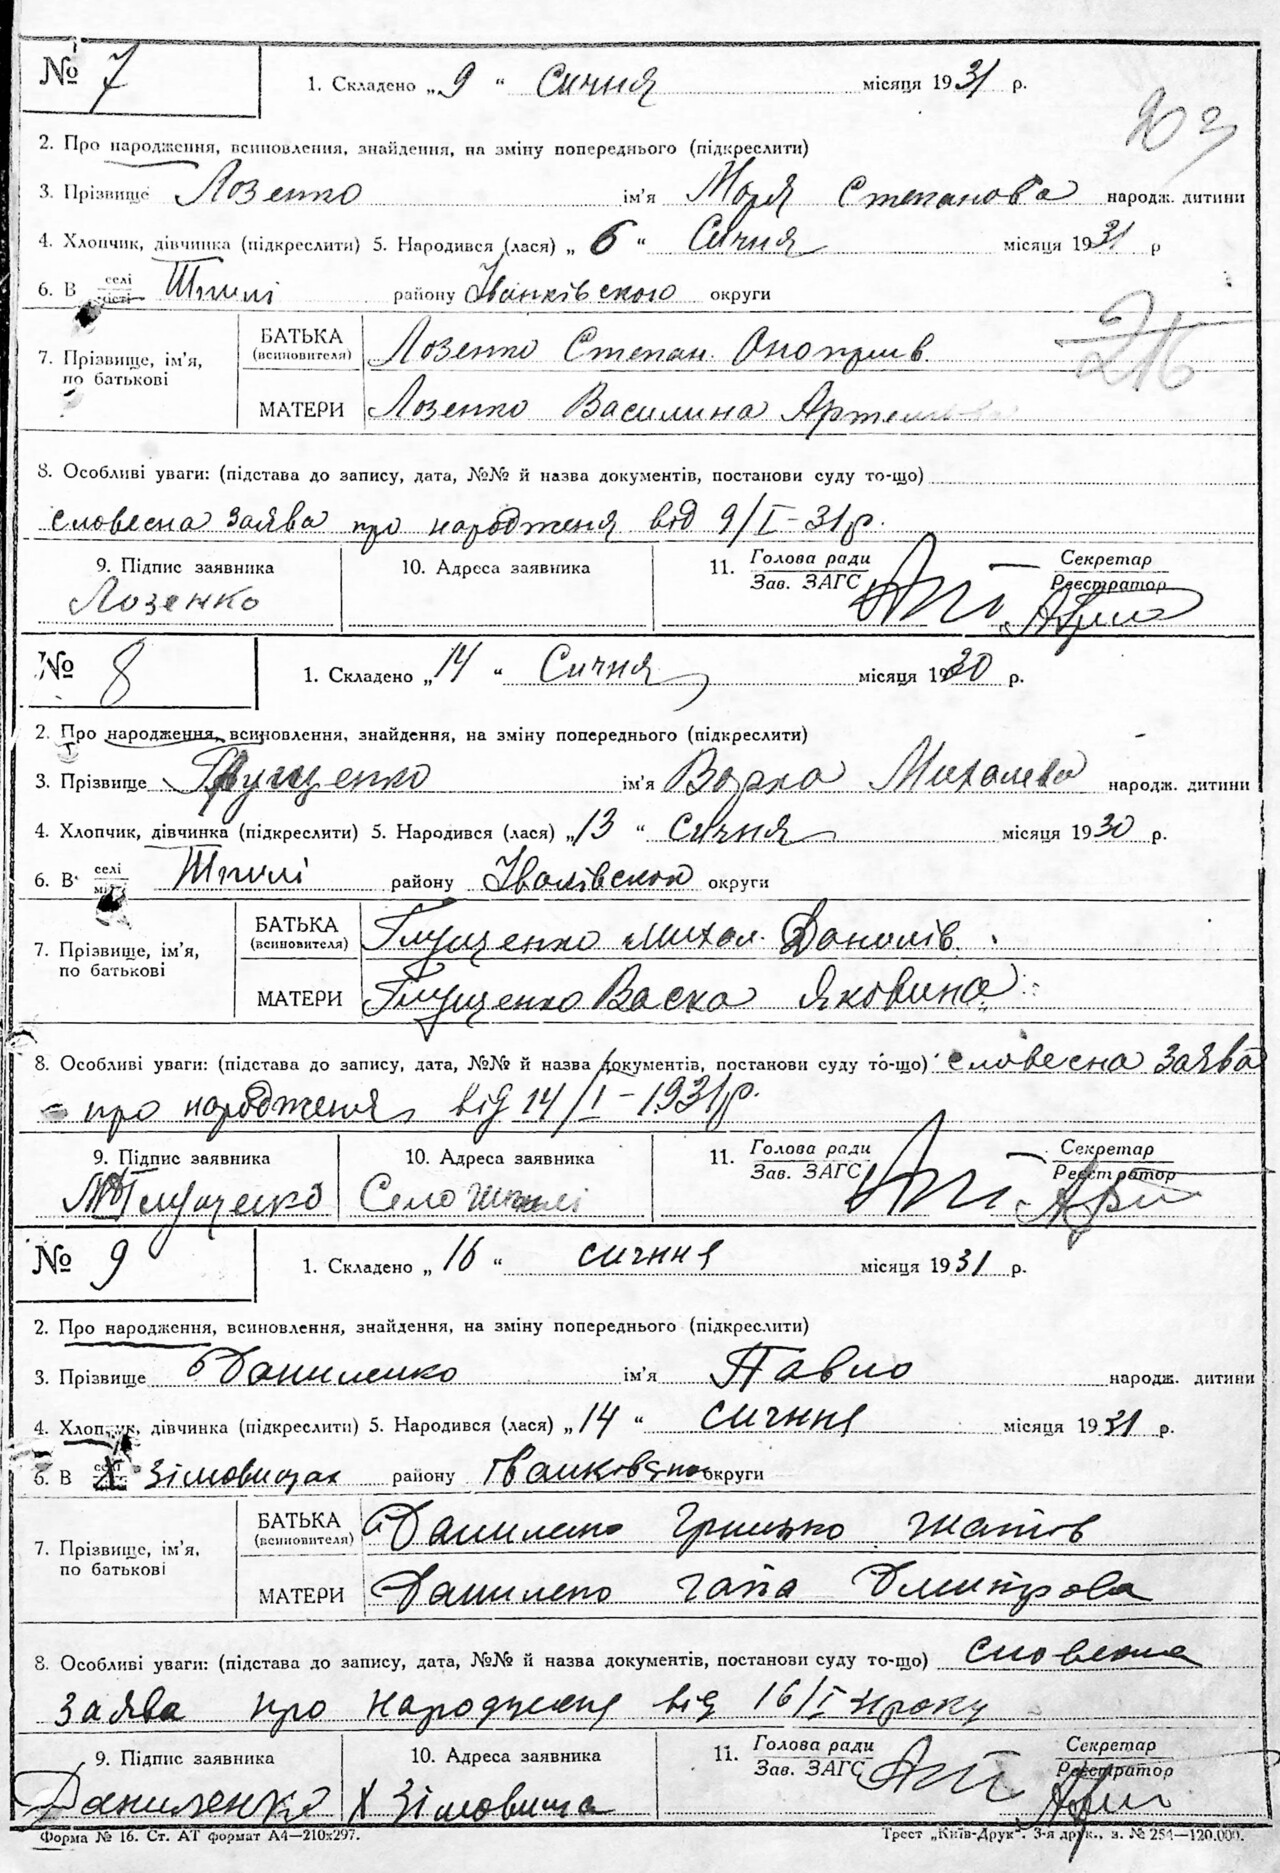 № 7 1. Складено „ 9 " Сичня місяця 1931 р.
203
2. Про народження, всиновлення, знайдення, на зміну попереднього (підкреслити)
3. Прізвище Лозенко ім'я Марія Степанова народж. дитини
4. Хлопчик, дівчинка (підкреслити) 5. Народився (лася) „ 6 " Сичня місяця 1931 р
6. В селі місті Шпилі району Іванківского округи
216
7. Прізвище, ім'я, по батькові БАТЬКА (всиновителя) Лозенко Степан Оноприів.
МАТЕРИ Лозенко Василина
8. Особливі уваги: (підстава до запису, дата, №№ й назва документів, постанови суду то-що)
словесна заява про народженя від 9/I-31р.
9. Підпис заявника 10. Адреса заявника 11. Голова ради Зав. ЗАГС Секретар Реєстратор
Лозенко
№ 8 1. Складено „ 14 " Сичня місяця 1930 р.
2. Про народження, всиновлення, знайдення, на зміну попереднього (підкреслити)
3. Прізвище Глущенко ім'я Варка Михалева народж. дитини
4. Хлопчик, дівчинка (підкреслити) 5. Народився (лася) „ 13 " сичня місяця 1930 р.
6. В селі місті Шпилі району округи
7. Прізвище, ім'я, по батькові БАТЬКА (всиновителя) Глущенко Михал. Данилів.
МАТЕРИ Глущенко Васка Яковина
8. Особливі уваги: (підстава до запису, дата, №№ й назва документів, постанови суду то-що) словесна заява
про народженя від 14/I-1931р.
9. Підпис заявника 10. Адреса заявника 11. Голова ради Зав. ЗАГС Секретар Реєстратор
Глущенко Село Шпилі
№ 9 1. Складено „ 16 " сичння місяця 1931 р.
2. Про народження, всиновлення, знайдення, на зміну попереднього (підкреслити)
3. Прізвище Даниленко ім'я Павло народж. дитини
4. Хлопчик, дівчинка (підкреслити) 5. Народився (лася) „ 14 " сичння місяця 1931 р.
6. В Х Зімовищах району округи
7. Прізвище, ім'я, по батькові БАТЬКА (всиновителя) Данилено Грицько
МАТЕРИ Данилено Гапа Дмитрова
8. Особливі уваги: (підстава до запису, дата, №№ й назва документів, постанови суду то-що) словесна
заява про народженя від 16/I н року
9. Підпис заявника 10. Адреса заявника 11. Голова ради Зав. ЗАГС Секретар Реєстратор
Даниленко Х Зімовища
Форма № 16. Ст. АТ формат А4—210х297. Трест „Київ-Друк". 3-я друк., з. № 254—120.000.